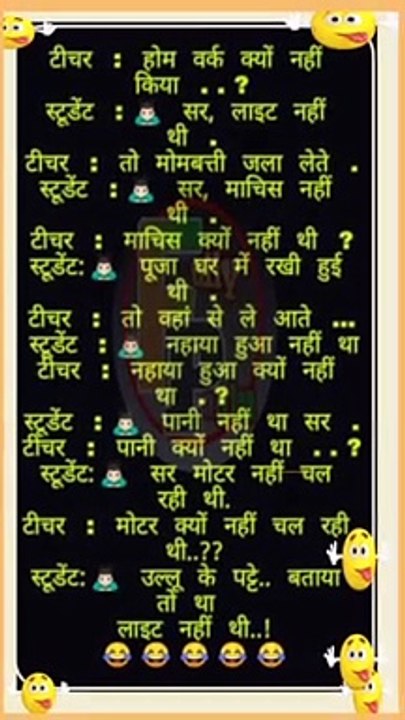 टीचर : होम वर्क क्यों नहीं
किया . . ?
स्टूडेंट : 🙇🏻 सर, लाइट नहीं
थी .
टीचर : तो मोमबत्ती जला लेते .
स्टूडेंट : 🙇🏻 सर, माचिस नहीं
थी .
टीचर : माचिस क्यों नहीं थी ?
स्टूडेंट: 🙇🏻 पूजा घर में रखी हुई
थी .
टीचर : तो वहां से ले आते ...
स्टूडेंट : 🙇🏻 नहाया हुआ नहीं था
टीचर : नहाया हुआ क्यों नहीं
था . ?
स्टूडेंट : 🙇🏻 पानी नहीं था सर .
टीचर : पानी क्यों नहीं था . . ?
स्टूडेंट: 🙇🏻 सर मोटर नहीं चल
रही थी.
टीचर : मोटर क्यों नहीं चल रही
थी..??
स्टूडेंट: 🙇🏻 उल्लू के पट्टे.. बताया
तो था
लाइट नहीं थी..!
😂 😂 😂 😂 😂